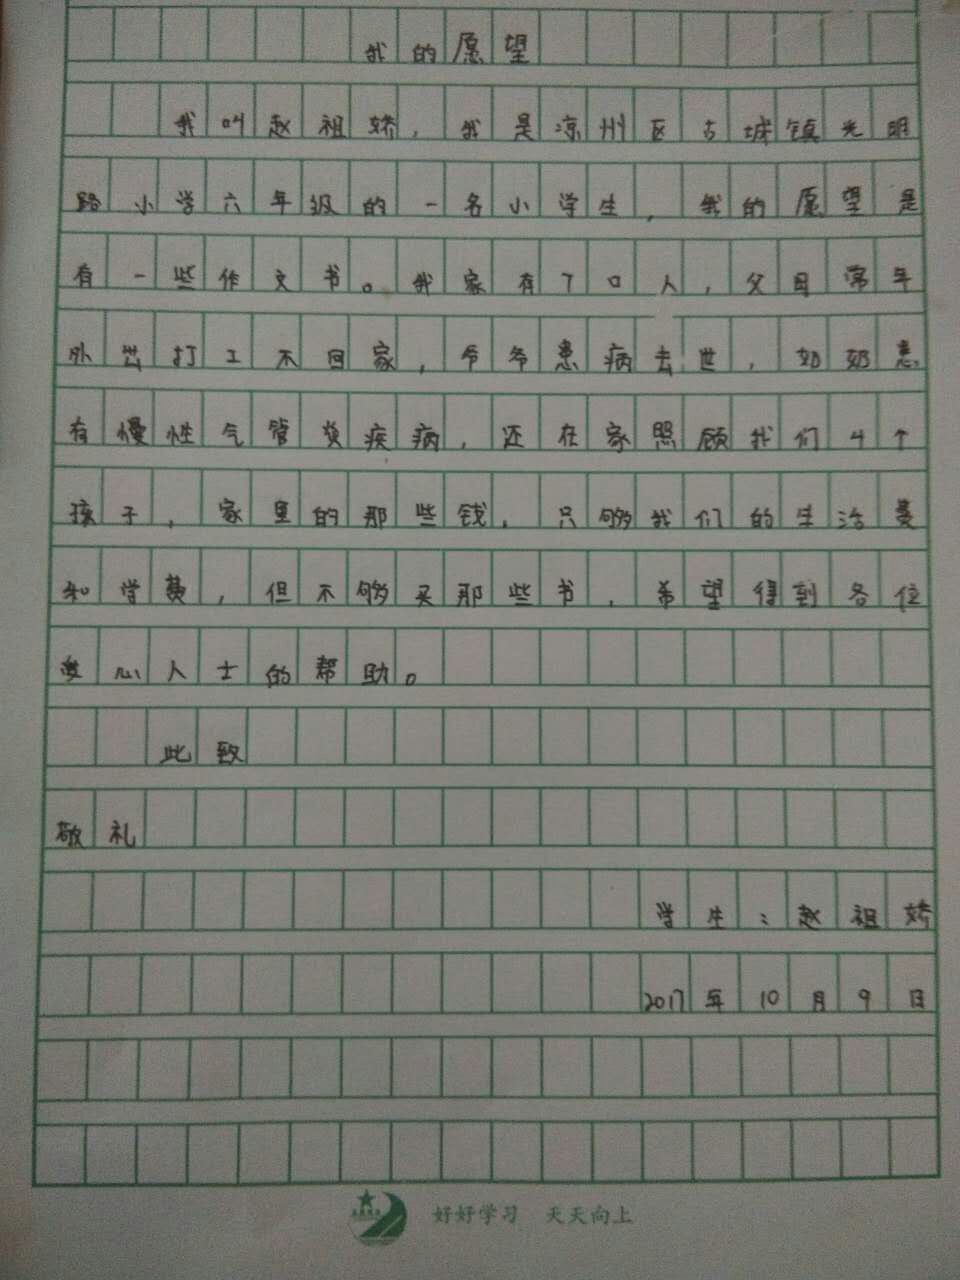 我的愿望
我叫赵祖娇，我是凉州区古城镇光明
路小学六年级的一名小学生，我的愿望是
有一些作文书。我家有7口人，父母常年
外出打工不回家，爷爷患病去世，奶奶患
有慢性气管炎疾病，还在家照顾我们4个
孩子，家里的那些钱，只够我们的生活费
和学费，但不够买那些书，希望得到各位
爱心人士的帮助。
此致
敬礼
学生：赵祖娇
2017年10月9日
好好学习 天天向上